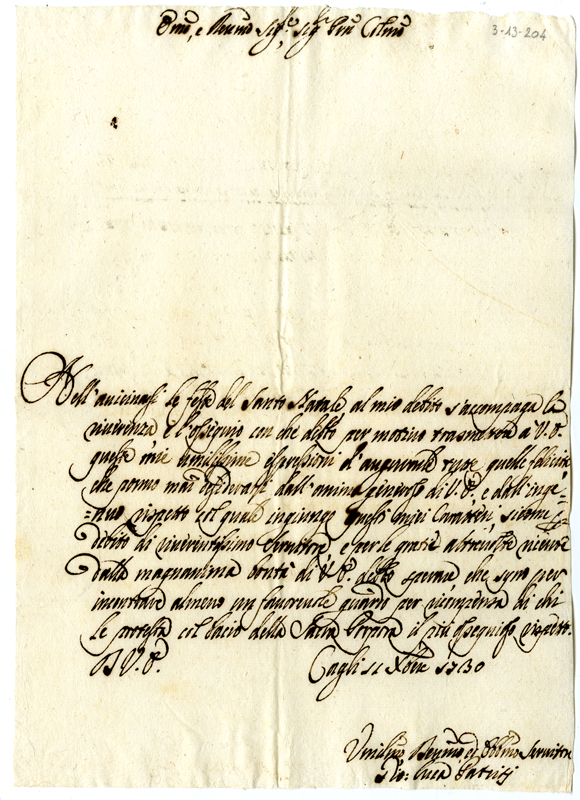 Emo, e Revmo Sigre Sigr Prn Colmo
3-13-204
Nell'avicinasi le feste del Santo Natale, al mio debito s'accompagna la
riverenza, e l'ossequio con che per motivo trasmettere a V. E.
queste mie umilissime espressioni d'augurarle tutte quelle felicità
che ponno mai desiderarsi dall'animo generoso di V. E. e dall'inge-
=nuo rispetto col quale ingiungo questi miei Caratteri, sicome
debito di riverentissimo Servitore, e per le gratie altre volte ricevute
dalla magnanima bontà di V. E. sperare che siano per
incontrare almeno un favorevole per ricompensa di chi
le protesta col bacio della Sacra Porpora il più ossequioso rispetto.
D V. E. Cagli 11 Xbre 1730
Umilissmo Devmo ed Obbmo Servitore
Gio: Luca